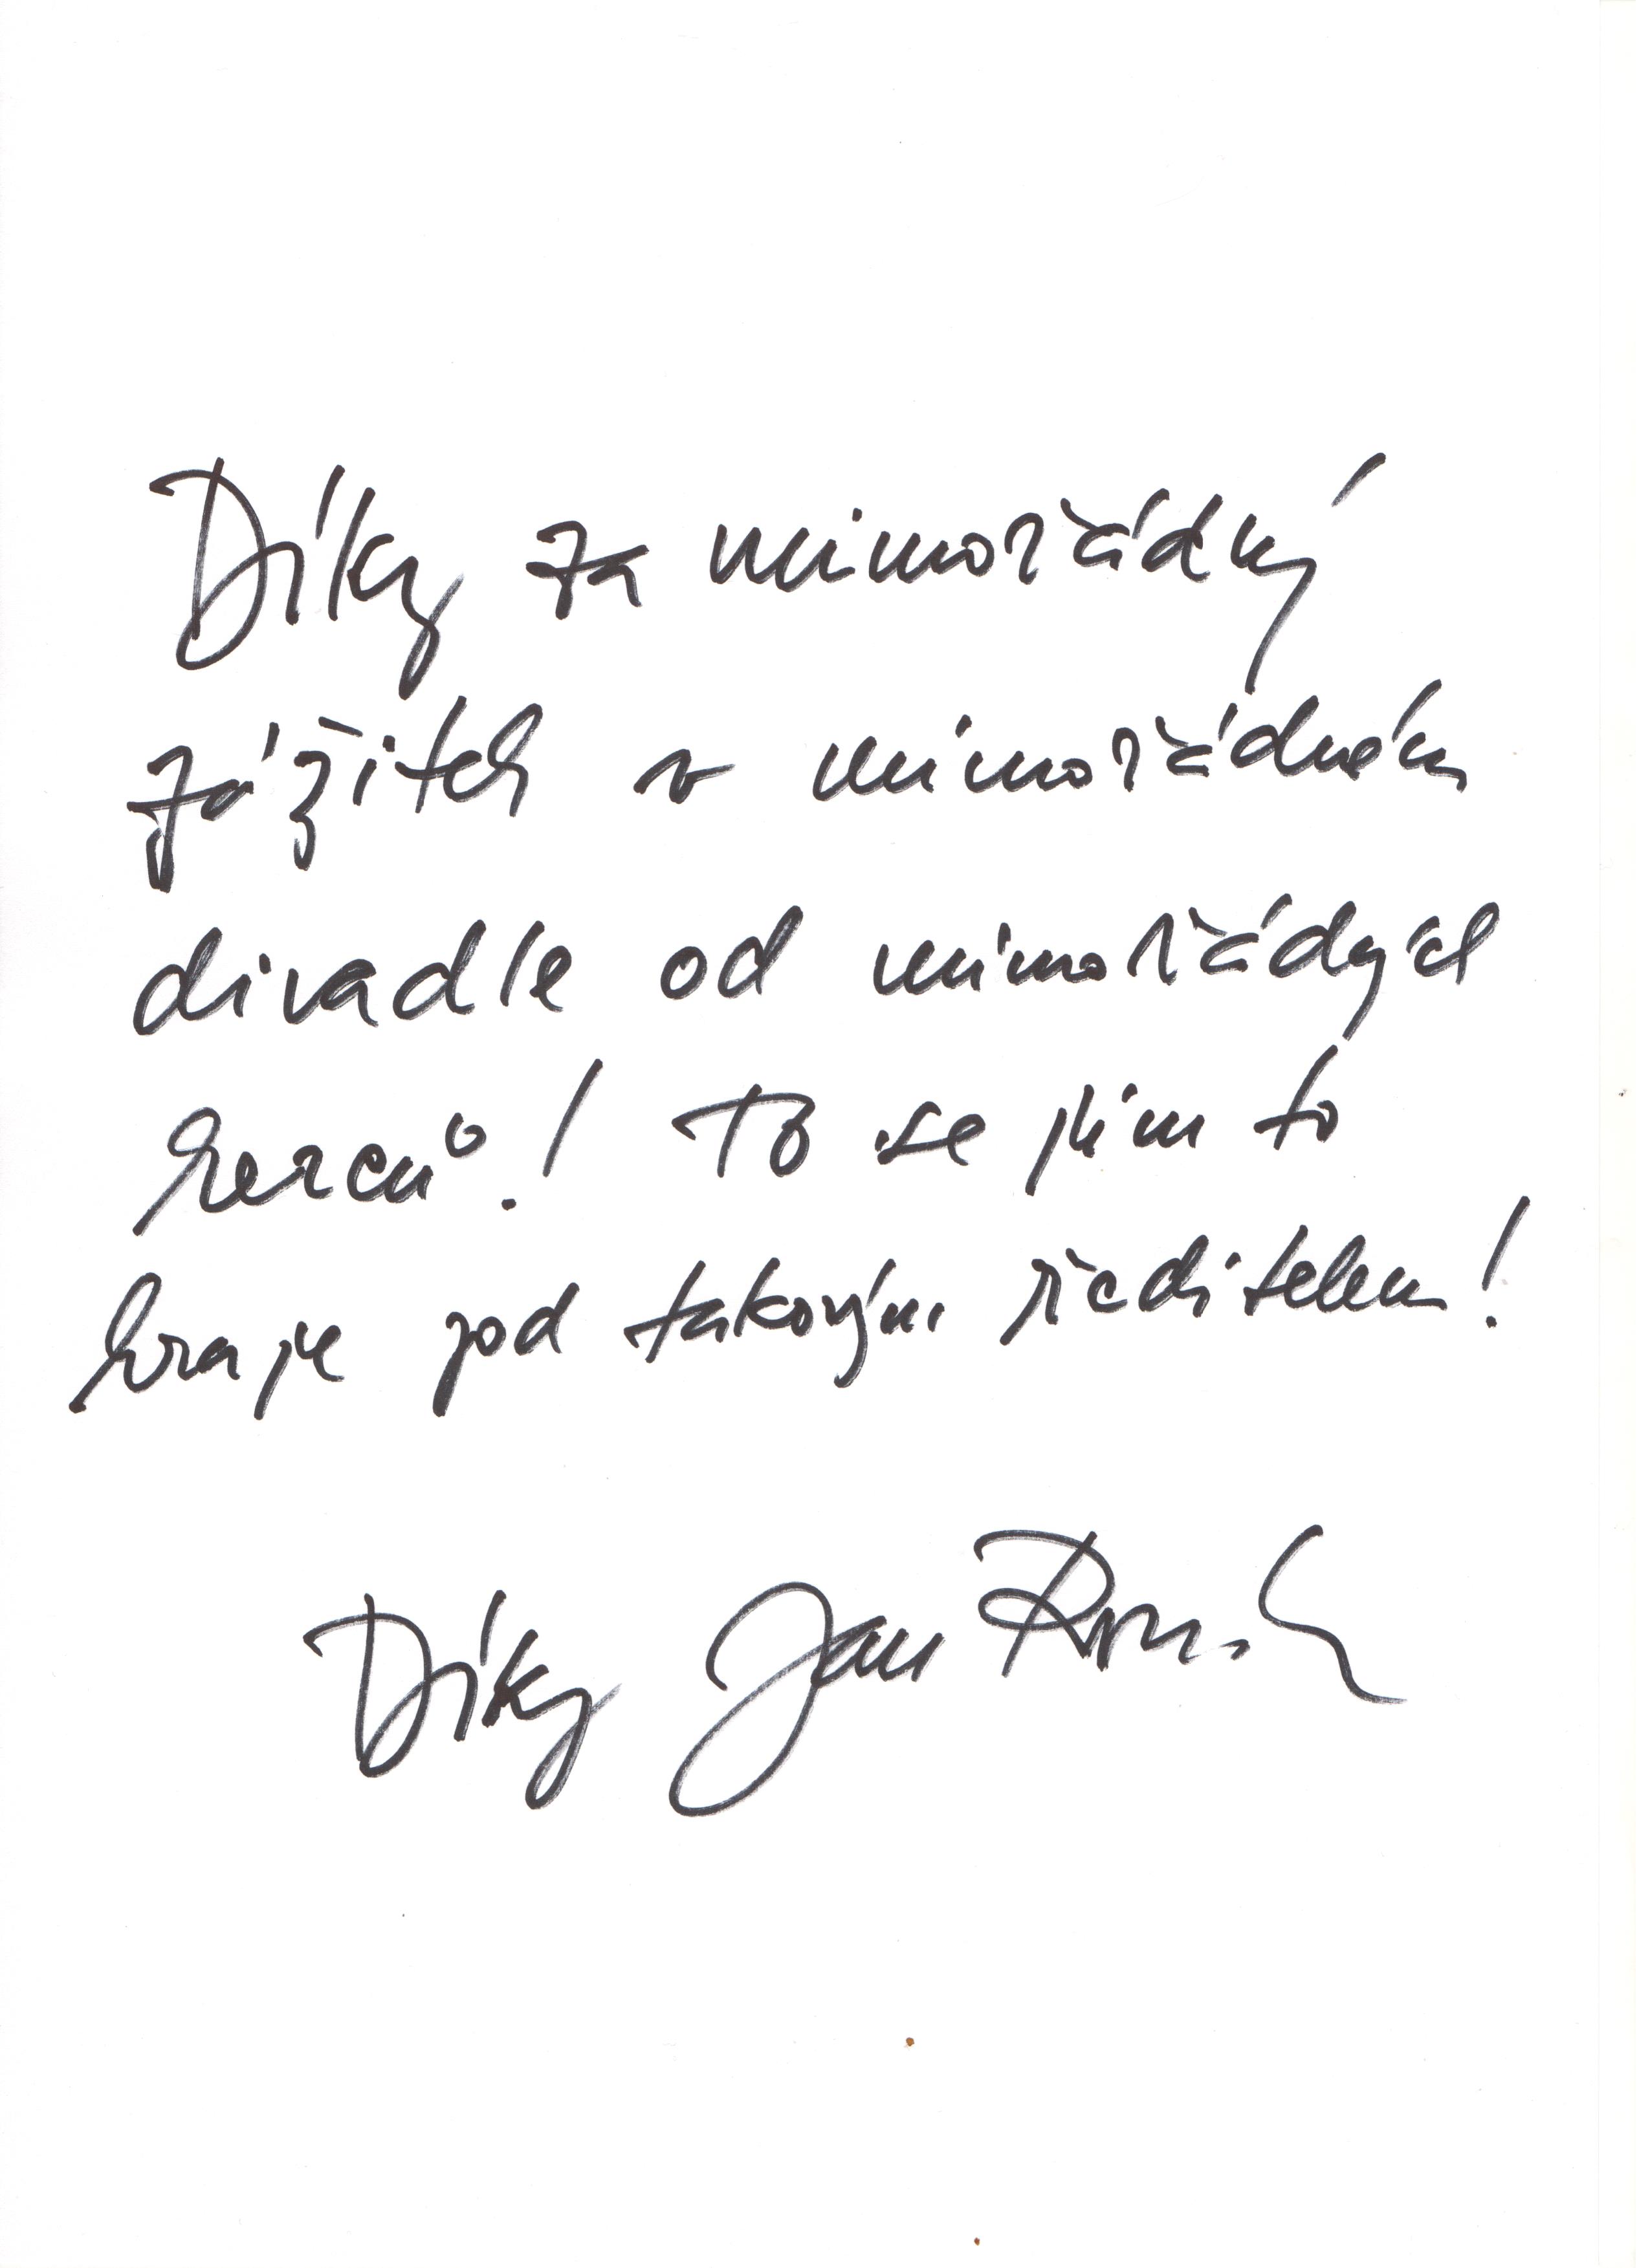 Díky za mimořádný
zážitek v mimořádném
divadle od mimořádých
herců! To se jim to
hraje pod takovým ředitelem!
Díky Jan